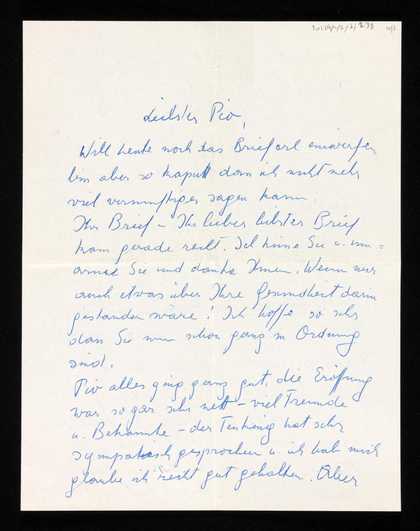 Liebster Pio,
Will heute noch das Brieferl einwerfen
bin aber so kaputt dass ich nicht mehr
viel vernünftiges sagen kann
Ihr Brief – Ihr lieber liebster Brief
kam gerade recht. Ich küsse Sie u. um=
armse Sie und danke Ihnen. Wenn nur
auch etwas über Ihre Gesundheit darin
gestanden wäre! Ich hoffe so sehr
dass Sie nun schon ganz in Ordnung
sind.
Pio alles ging ganz gut, die Eröffnung
war sogar sehr nett – viel Freunde
u. Bekannte – der hat sehr
sympathisch gesprochen u. ich hab mich
glaube ich recht gut gehalten. Aber